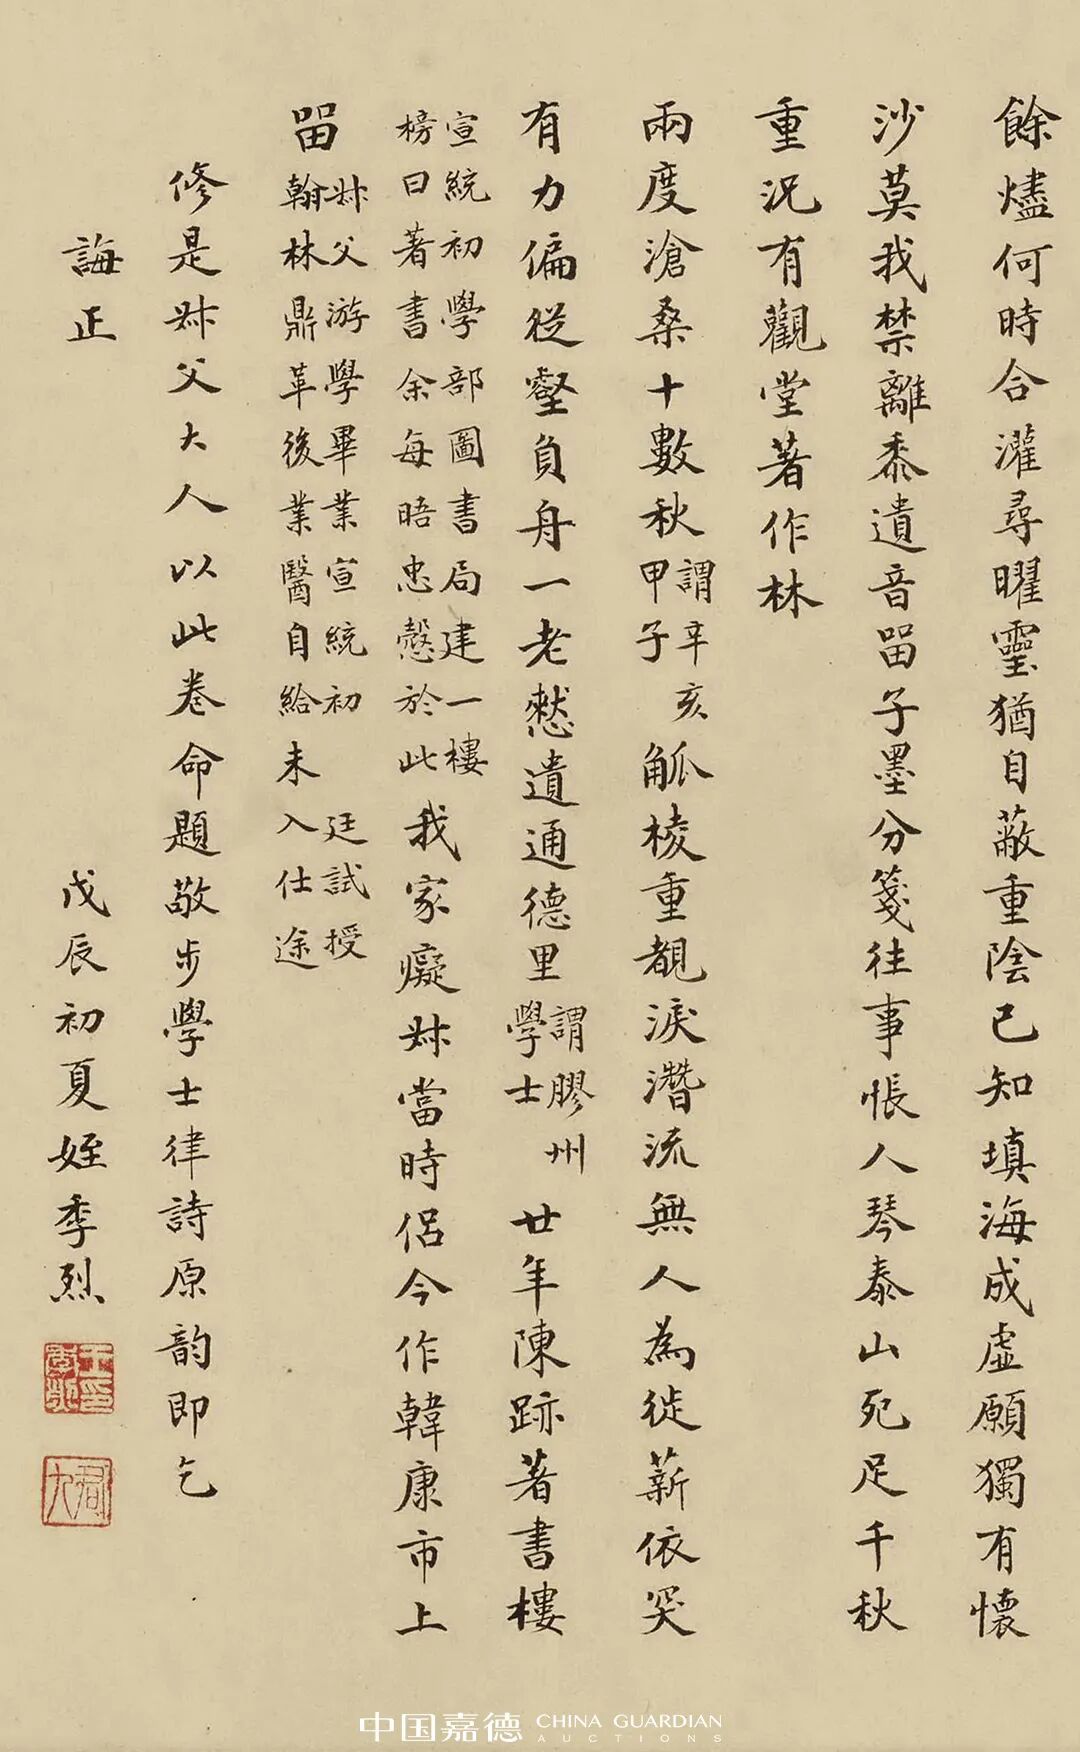 餘燼何時合灌尋曜靈猶自蔽重陰已知填海成虛願獨有懷
沙莫我禁離黍遺音畱子墨分箋往事悵人琴泰山死足千秋
重況有觀堂著作林
兩度滄桑十數秋謂辛亥甲子觚棱重覩淚潛流無人為徙薪依突
有力偏從壑負舟一老憖遺通德里謂膠州學士廿年陳跡著書樓
宣統初學部圖書局建一樓榜曰著書余每晤忠慤於此我家癡叔當時侶今作韓康市上
畱叔父游學畢業宣統初廷試授翰林鼎革後業醫自給未入仕途
修是叔父大人以此卷命題敬步學士律詩原韵即乞
誨正
戊辰初夏姪季烈
君九
中国嘉德 CHINA GUARDIAN
AUCTIONS